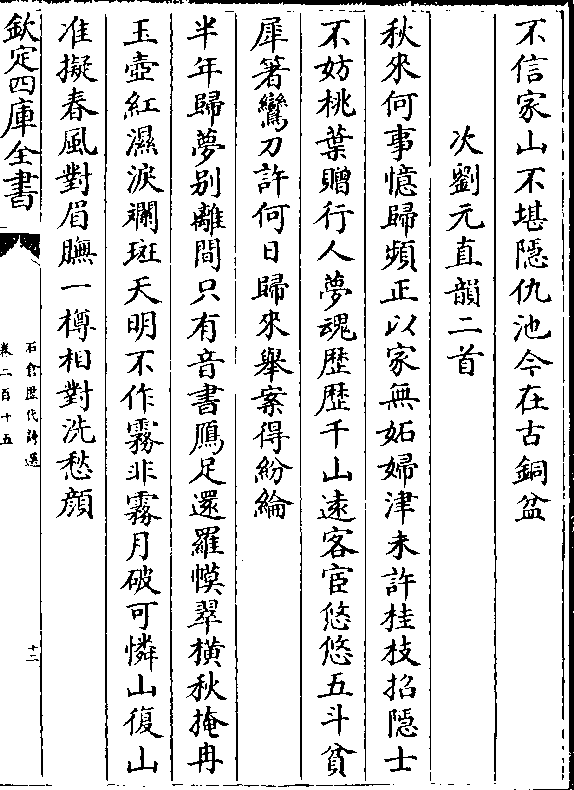 不信家山不堪隱仇池今在古銅盆
次劉元直韻二首
秋來何事憶歸頻正以家無妬婦津未許桂枝招隱士
不妨桃葉贈行人夢魂歴歴千山逺客宦悠悠五斗貧
犀箸鸞刀許何日歸來舉案得紛綸
半年歸夢别離間只有音書鴈足還羅幙翠横秋掩冉
玉壺紅濕淚斕斑天明不作霧非霧月破可憐山復山
准擬春風對眉膴一樽相對洗愁顔
欽定四庫全書
石倉歴代詩選
卷二百十五
十二